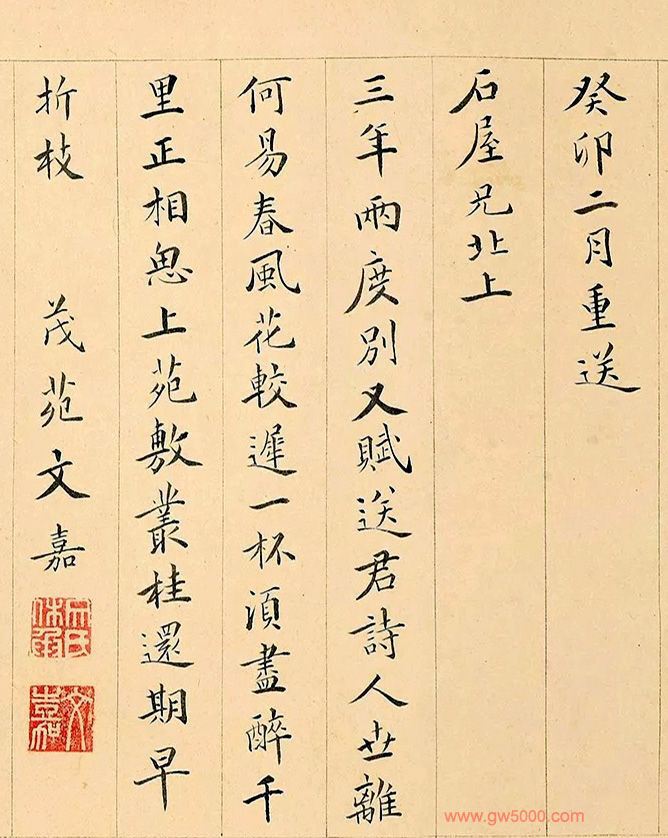 癸卯二月重送
石屋兄北上
三年兩度別又賦送君詩人世離
何易春風花較遲一杯須盡醉千
里正相思上苑敷叢桂還期早
折枝 茂苑文嘉
文嘉
www.gw5000.com